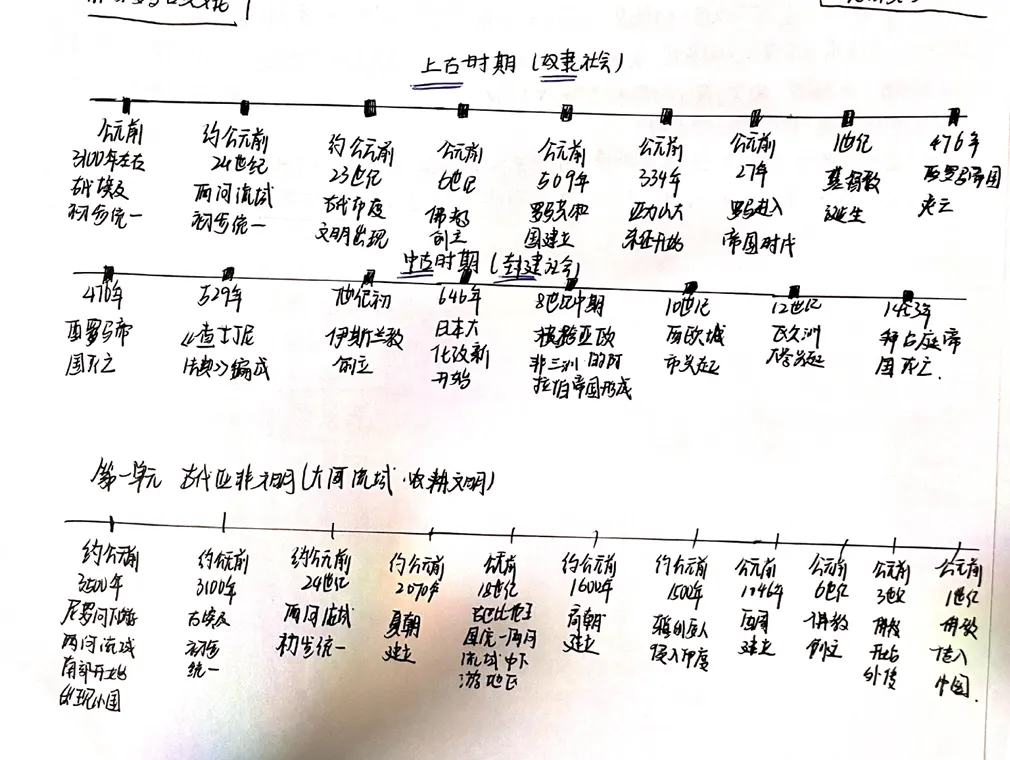 上古时期(奴隶社会)
公元前
3100年左右
古代埃及
初步统一
约公元前
24世纪
两河流域
初步统一
约公元前
23世纪
古代印度
文明出现
公元前
6世纪
佛教
创立
公元前
509年
罗马共和
国建立
公元前
334年
亚力山大
东征开始
公元前
27年
罗马进入
帝国时代
1世纪
基督教
诞生
476年
西罗马帝国
灭亡
中古时期(封建社会)
476年
西罗马帝
国灭亡
529年
《查士丁尼
法典》编成
7世纪初
伊斯兰教
创立
646年
日本大
化改新
开始
8世纪中期
横跨亚欧
非三洲的阿
拉伯帝国形成
10世纪
西欧城
市兴起
12世纪
欧洲
大学兴起
1453年
拜占庭帝
国灭亡.
第一单元 古代亚非文明(大河流域·农耕文明)
约公元前
3500年
尼罗河下游
两河流域
南部开始
出现小国
约公元前
3100年
古埃及
初步
统一
约公元前
24世纪
两河流域
初步统一
约公元前
2070年
夏朝
建立
公元前
18世纪
古巴比伦王
国统一两河
流域中下
游地区
约公元前
1600年
商朝
建立
约公元前
1500年
雅利安人
侵入印度
公元前
1046年
西周
建立
公元前
6世纪
佛教
创立
公元前
3世纪
佛教
开始
外传
公元前
1世纪
佛教
传入
中国.